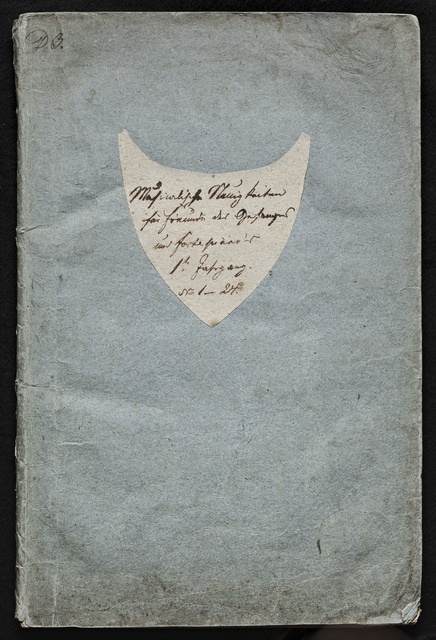 D. 3.
Musicalische Neuigkeiten
für Freunde des Gesanges
und forte piano's
1r Jahrgang.
No 1 – 24.